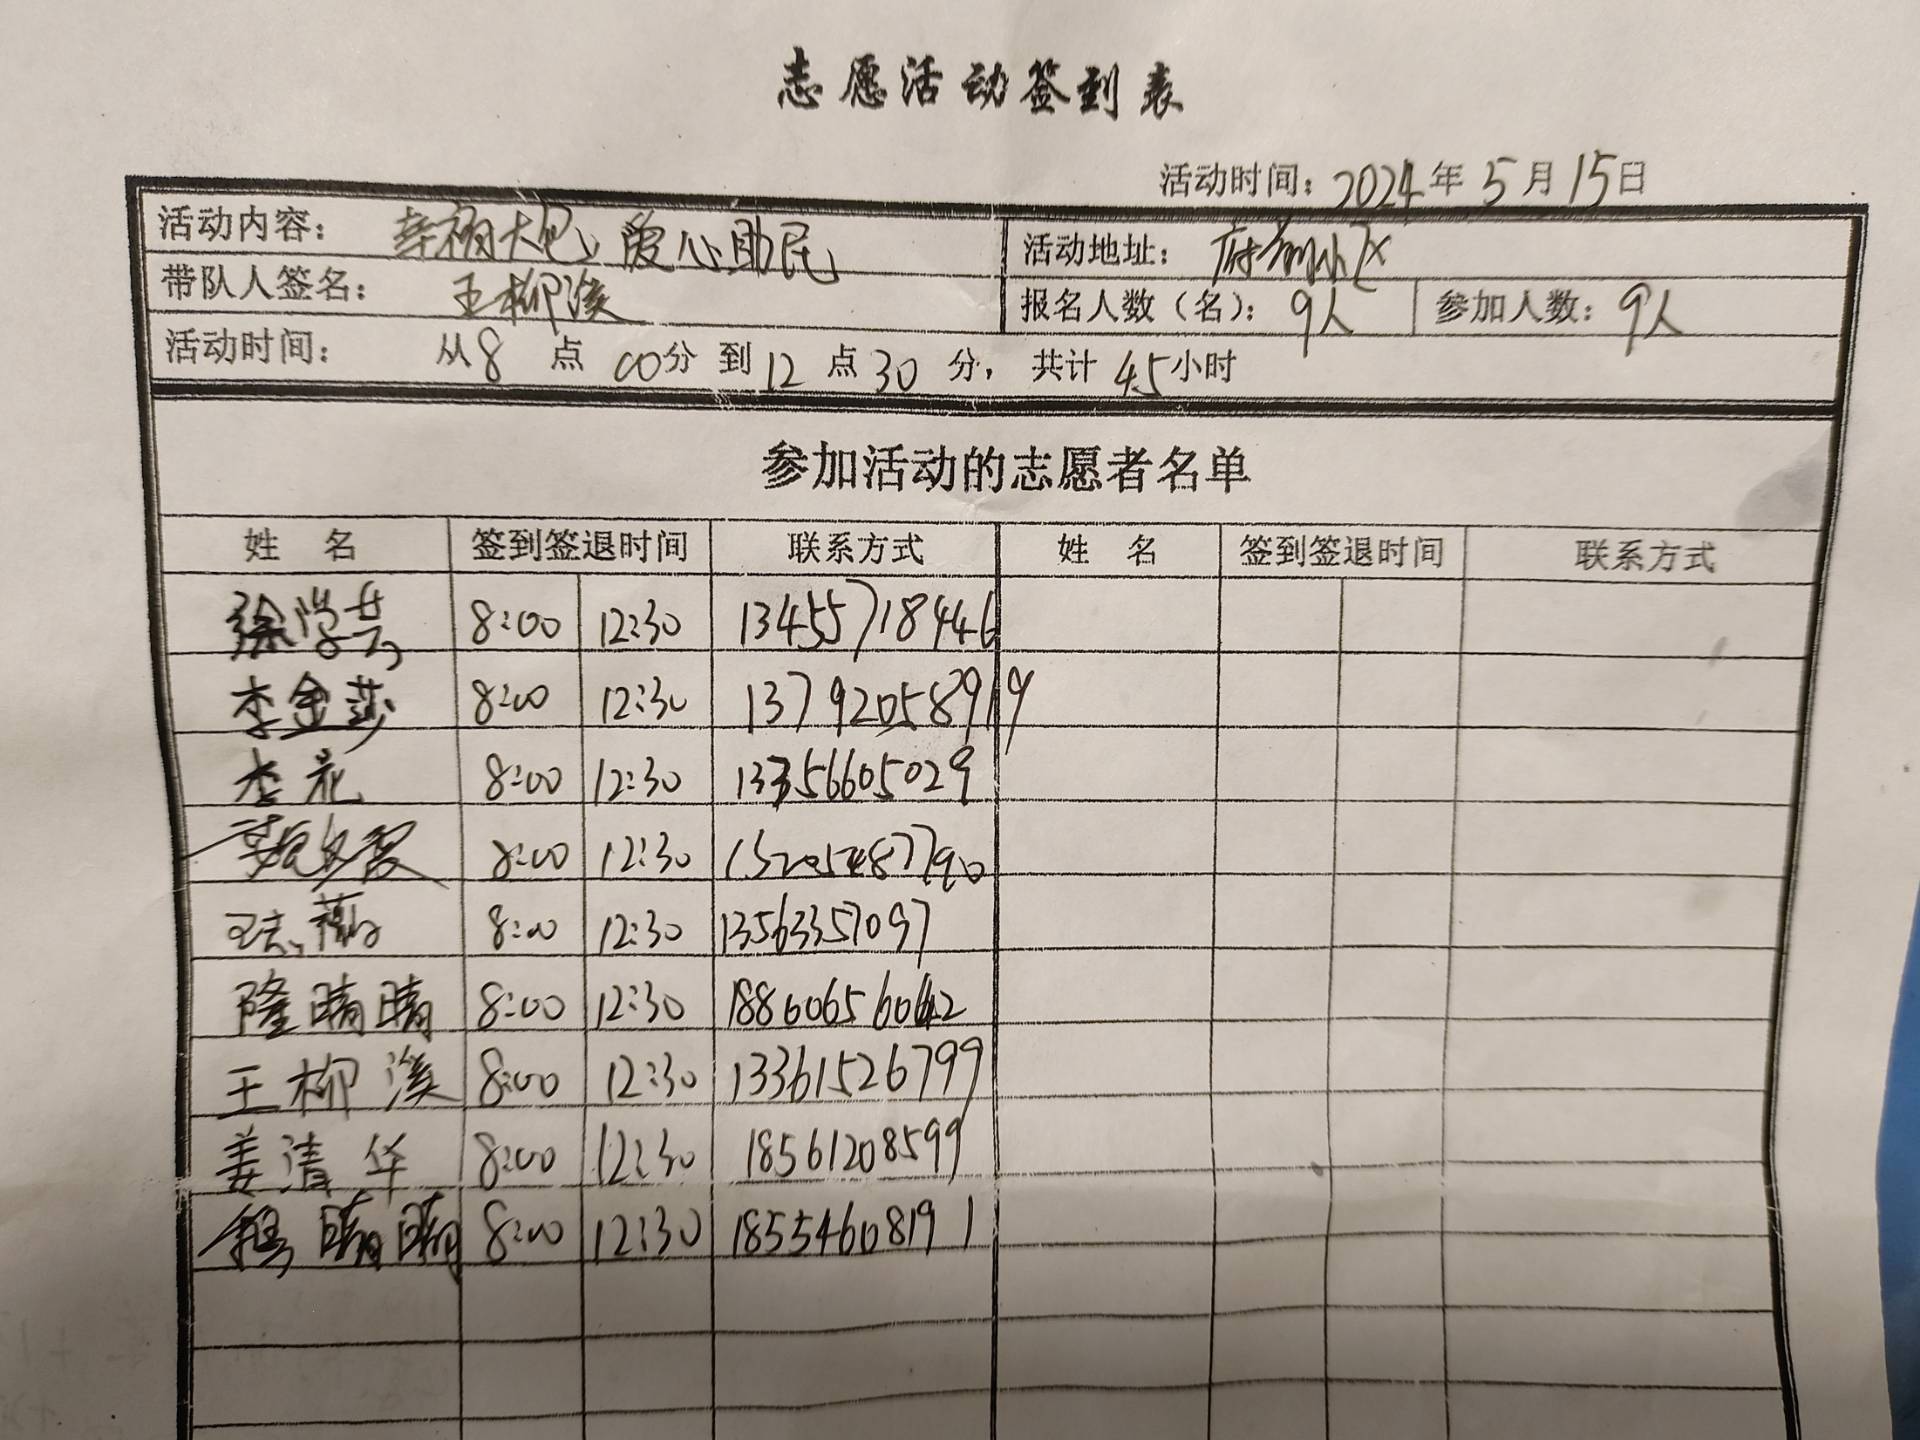 志愿活动签到表
活动时间：2024年5月15日
活动内容：幸福大包，爱心助民 活动地址：府前小区
带队人签名：王柳溪 报名人数（名）：9人 参加人数：9人
活动时间：从8点00分到12点30分，共计4.5小时
参加活动的志愿者名单
姓 名 签到签退时间 联系方式 姓 名 签到签退时间 联系方式
8:00 12:30 13455718446
李金莎 8:00 12:30 13792058919
李 8:00 12:30 13356605029
8:00 12:30 15205487790
8:00 12:30 13563357097
隆晴晴 8:00 12:30
王柳溪 8:00 12:30 13361526799
姜清华 8:00 12:30 18561208599
晴晴 8:00 12:30 18554608191